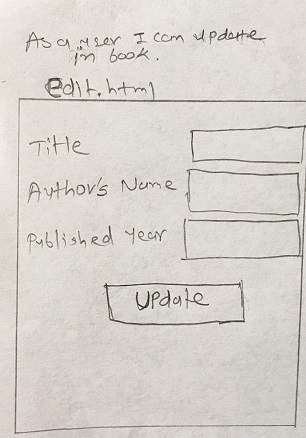 As a user I can update
in book.
edit.html
Title
Author's Name
Published Year
Update